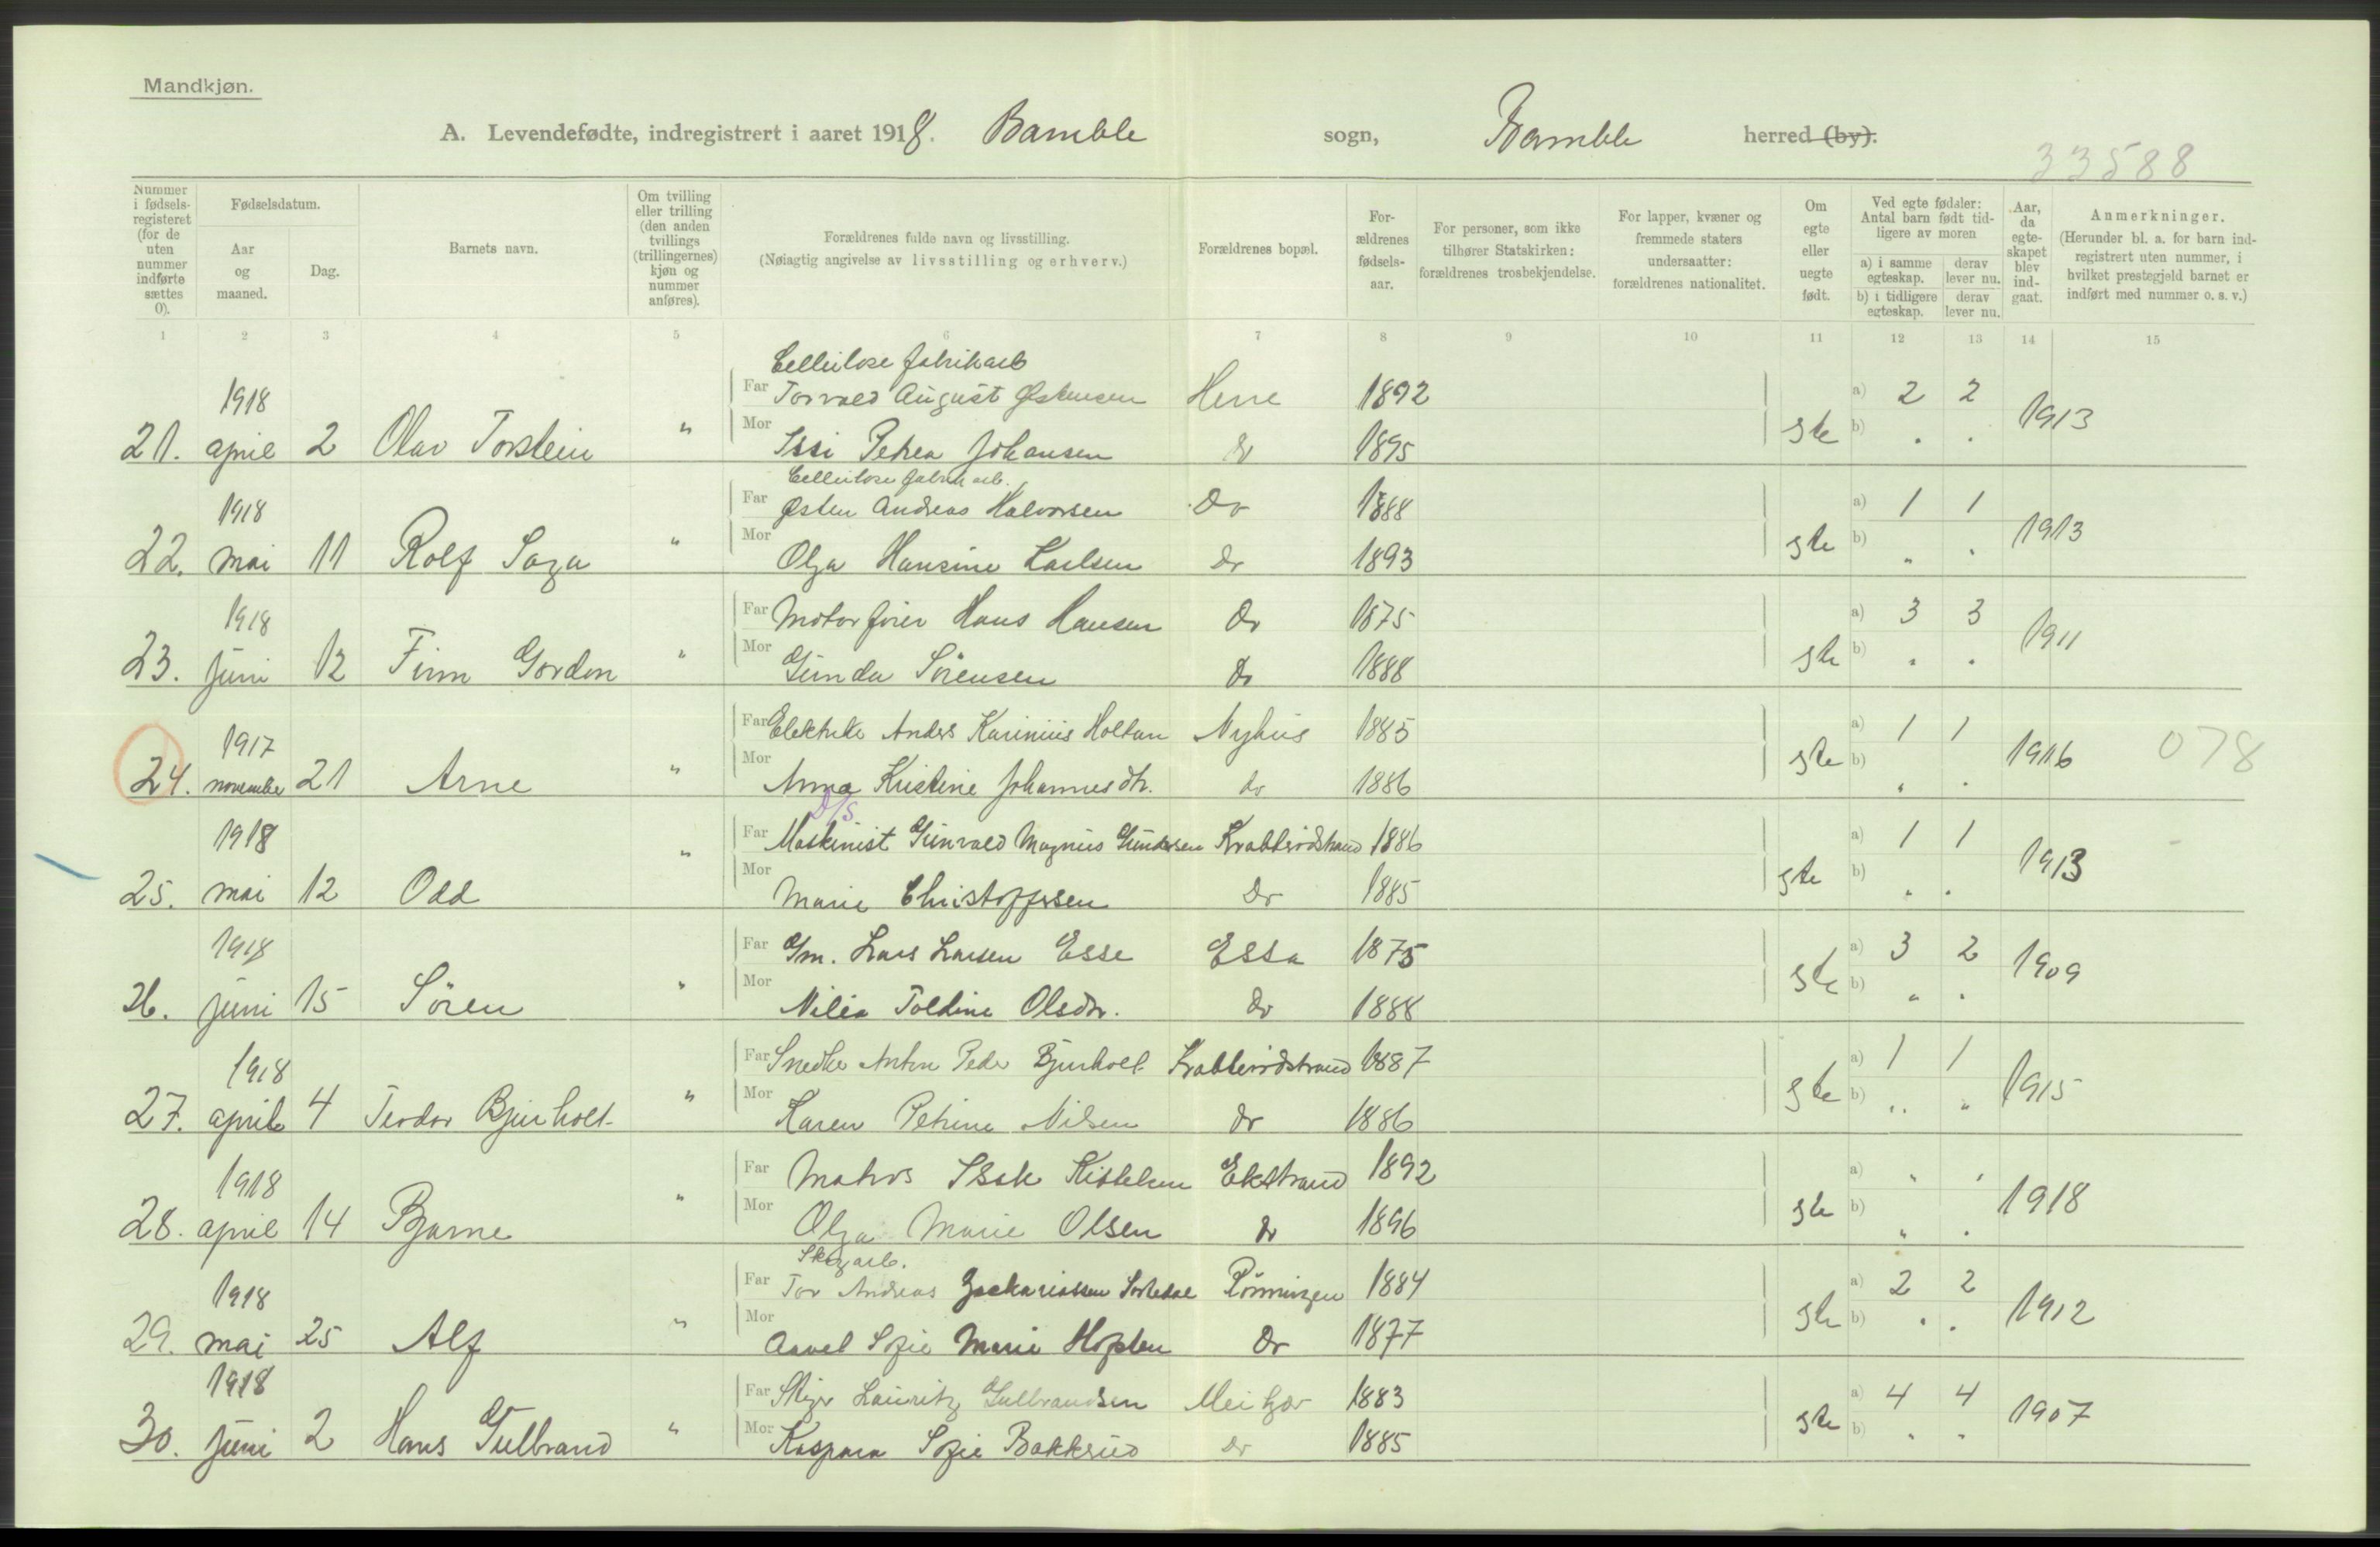 Mandkjøn.
A. Levendefødte, indregistrert i aaret 1918. Bamble sogn, Bamble herred (by).
33588
Nummer i fødsels-registeret (for de uten nummer indførte sættes 0).
Fødselsdatum.
Aar og maaned.
Dag.
Barnets navn.
Om tvilling eller trilling (den anden tvillings (trillingernes) kjøn og nummer anføres).
Forældrenes fulde navn og livsstilling.
(Nøiagtig angivelse av livsstilling og erhverv.)
Forældrenes bopæl.
For-ældrenes fødsels-aar.
For personer, som ikke tilhører Statskirken: forældrenes trosbekjendelse.
For lapper, kvæner og fremmede staters undersaatter: forældrenes nationalitet.
Om egte eller uegte født.
Ved egte fødsler: Antal barn født tid-ligere av moren
a) i samme egteskap. derav lever nu.
b) i tidligere egteskap. derav lever nu.
Aar, da egte-skapet blev ind-gaat.
Anmerkninger.
(Herunder bl. a. for barn ind-registrert uten nummer, i hvilket prestegjeld barnet er indført med nummer o. s. v.)
1 2 3 4 5 6 7 8 9 10 11 12 13 14 15
Cellulose fabrikarb
1918 Far Torvald August Østensen Herre 1892 a) 2 2 1913
21. april 2 Olav Torstein " Mor Issi Petrea Johansen do 1895 gte b) " "
Cellulose fabrik arb.
1918 Far Østen Andreas Halvorsen Do 1888 a) 1 1 1913
22. mai 11 Rolf Saga " Mor Olga Hansine Karlsen do 1893 gte b) " "
1918 Far Motorfører Hans Hansen do 1875 a) 3 3 1911
23. juni 12 Finn Gordon " Mor Gunda Sörensen do 1888 gte b) " "
1917 Far Elektrike Anders Karinius Holtan Nyhus 1885 a) 1 1 1916 078
24. november 21 Arne " Mor Anna Kristine Johannesdtr. do 1886 gte b) " "
D/S
1918 Far Maskinist Gunvald Magnus Gundersen Krabberödstrand 1886 a) 1 1 1913
25. mai 12 Odd " Mor Marie Christoffersen do 1885 gte b) " "
1918 Far Gm. Lars Larsen Esse Essa 1875 a) 3 2 1909
26. juni 15 Sören " Mor Nilia Toldine Olsdtr. do 1888 gte b) " "
1918 Far Snedker Anton Peder Bjurholt Krabberödstrand 1887 a) 1 1 1915
27. april 4 Teodor Bjurholt " Mor Karen Petrine Nilsen do 1886 gte b) " "
1918 Far Matros Isak Kittelsen Ekstrand 1892 a) " " 1918
28. april 14 Bjarne " Mor Olga Marie Olsen do 1896 gte b) " "
Skogarb.
1918 Far Tor Andreas Zackariassen Sortedal Rönningen 1884 a) 2 2 1912
29. mai 25 Alf " Mor Aavel Sofie Marie Hopten do 1877 gte b) " "
1918 Far Lauritz Gulbrandsen 1883 a) 4 4 1907
30. juni 2 Hans Gulbrand " Mor Kaspara Sofie Bakkerud do 1885 gte b) " "